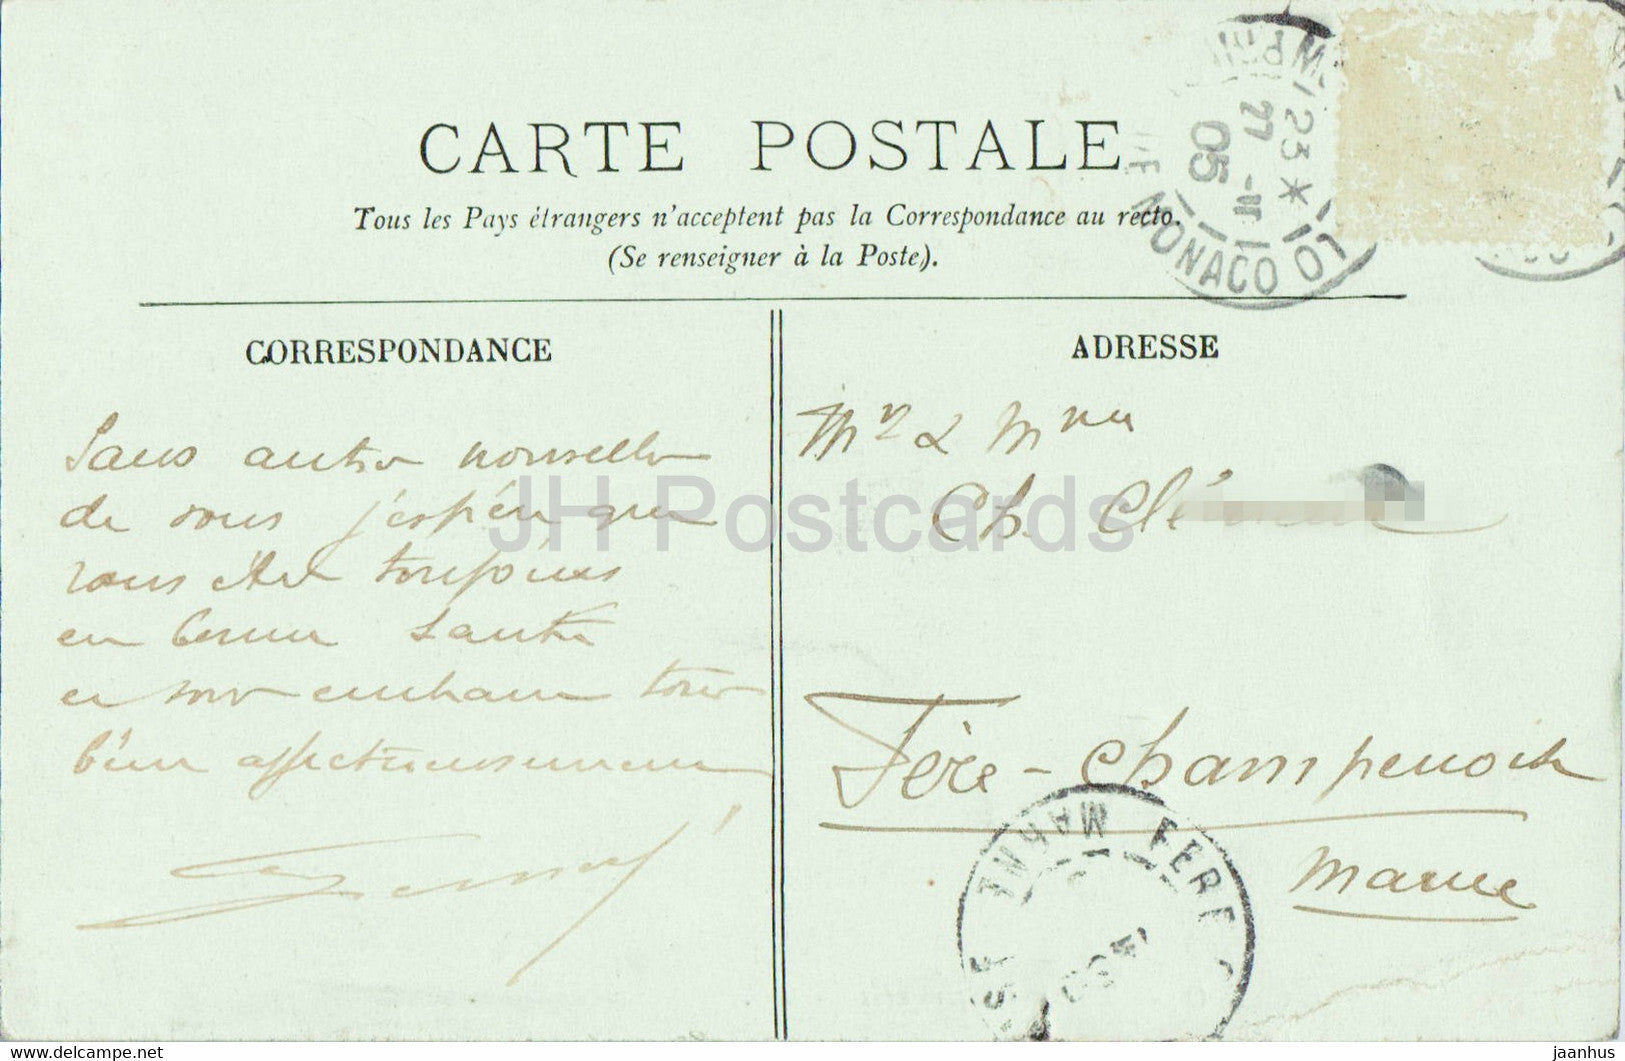 CARTE POSTALE
Tous les Pays étrangers n'acceptent pas la Correspondance au recto.
(Se renseigner à la Poste).
MONACO
23 *
27 -II
05
CORRESPONDANCE
Sans autre nouvelle
de vous j'espère que
vous êtes toujours
en bonne santé
en vous embrassant tous
bien affectueusement
ADRESSE
Mr & Mme
Ch. Clé
Fère-Champenoise
Marne
FERE
MARNE
JH Postcards
delcampe.net
jaanhus